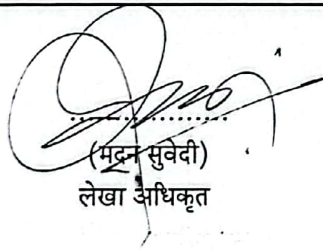 (मदन सुवेदी)
लेखा अधिकृत